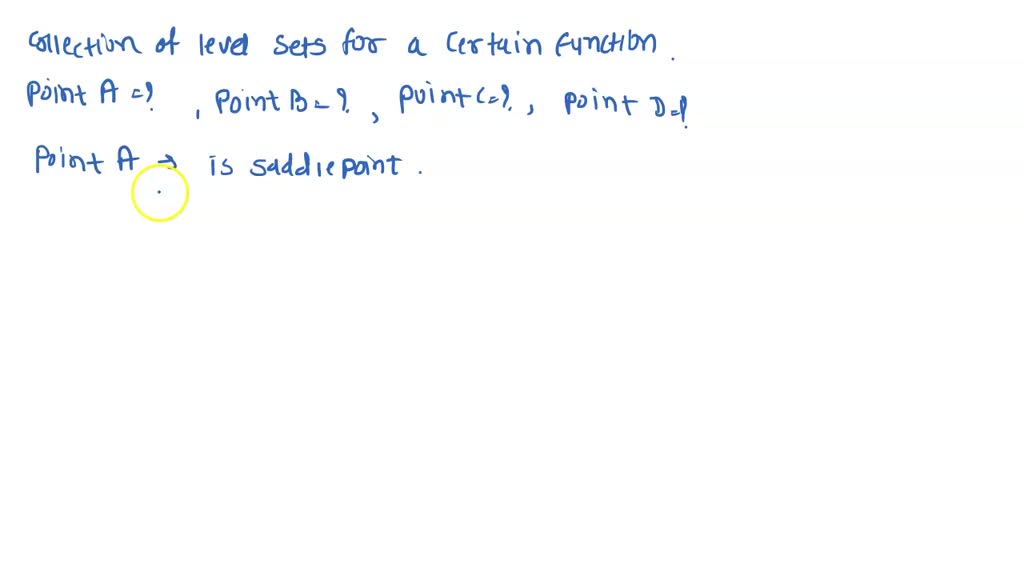 Collection of level sets for a certain function.
Point A=?, Point B=?, Point C=?, Point D=?
Point A → is saddle point.